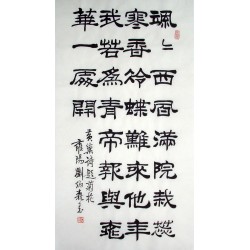 颯〻西風滿院栽蕊
寒香冷蝶難來他年
我若為青帝報與桃
華一處開
黃巢詩題菊花
雍陽劉炳森